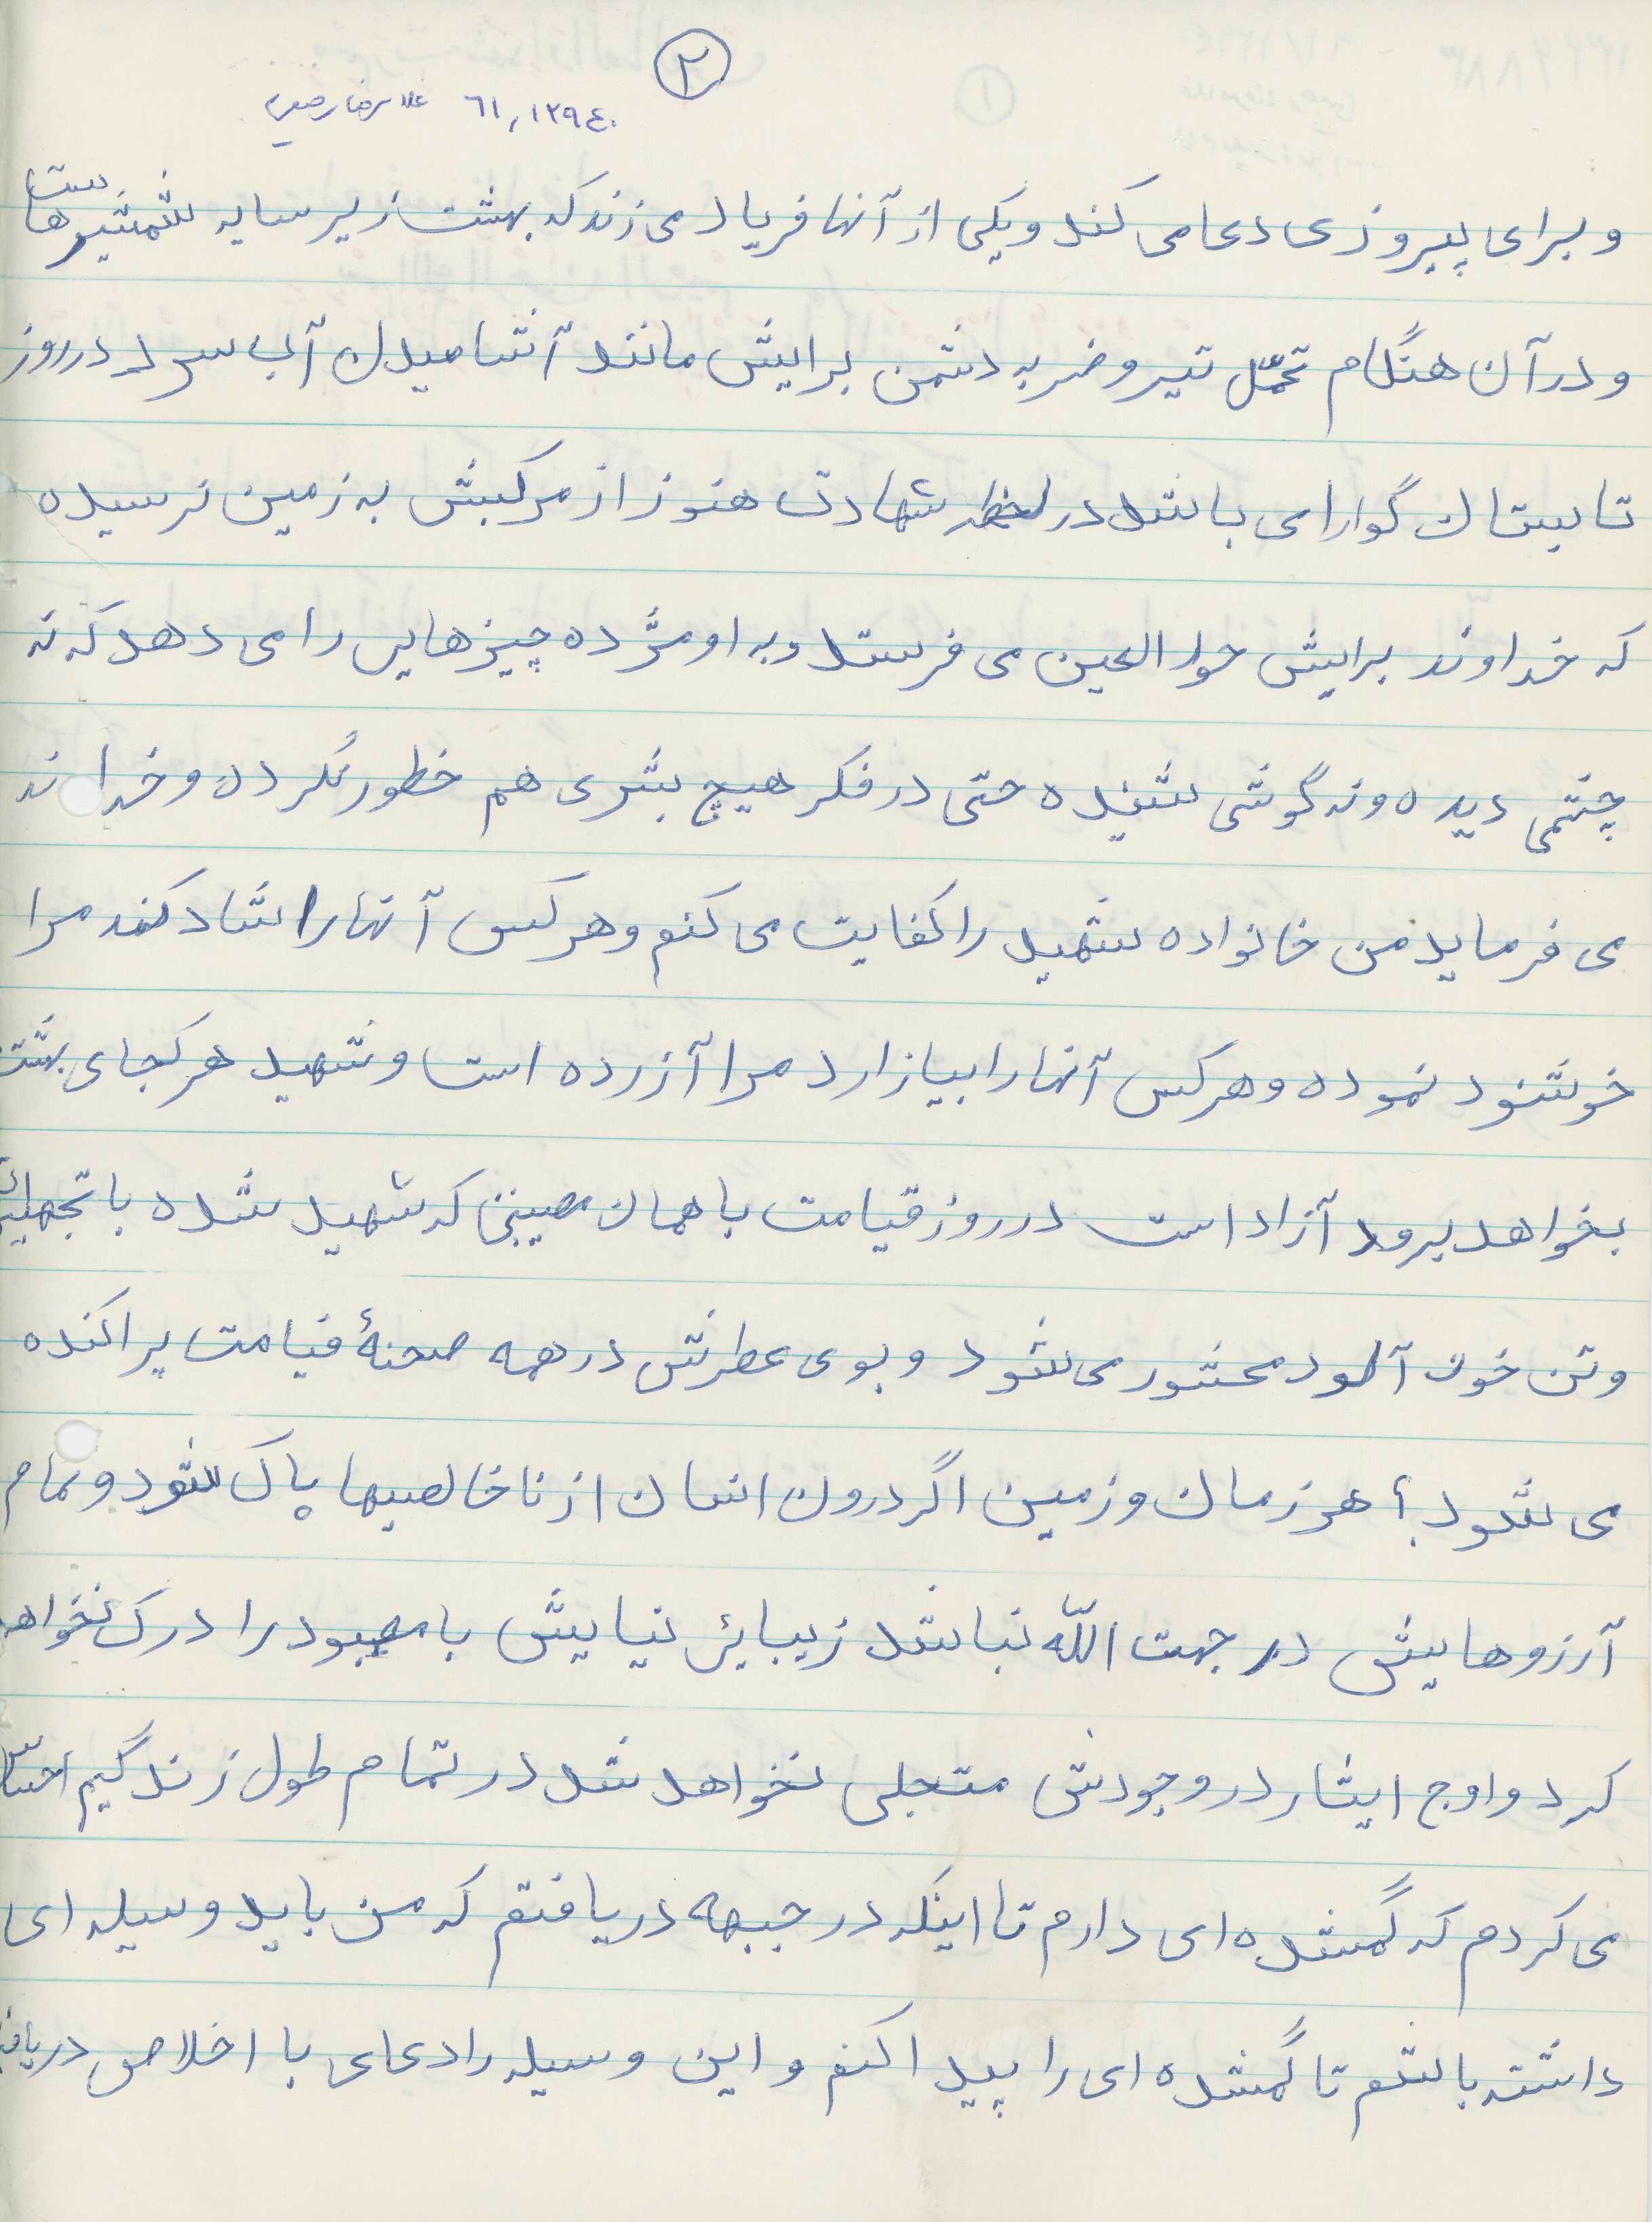 ۲
٦١,١٢٩٤٠ غلامرضا رضایی
و برای پیروزی دعا می کند و یکی از آنها فریاد می زند که بهشت زیر سایه شمشیرهاست
و در آن هنگام تحمّل تیر و ضربه دشمن برایش مانند آشامیدن آب سرد در روز
تابستان گوارا می باشد در لحظه شهادت هنوز از مرکبش به زمین نرسیده
که خداوند برایش حور العین می فرستد و به او مژده چیزهایی را می دهد که نه
چشمی دیده و نه گوشی شنیده حتی در فکر هیچ بشری هم خطور نکرده و خداوند
می فرماید من خانواده شهید را کفایت می کنم و هر کس آنها را شاد کند مرا
خوشنود نموده و هر کس آنها را بیازارد مرا آزرده است و شهید هر کجای بهشت
بخواهد برود آزاد است در روز قیامت با همان که شهید شده با تجهیزات
و تن خون آلود محشور می شود و بوی عطرش در همه صحنهٔ قیامت پراکنده
می شود؛ هر زمان و زمین اگر درون انسان از ناخالصیها پاک نشود و تمام
آرزوهایش در جهت اللّه نباشد زیبایی نیایش با معبود را درک نخواهد
کرد و اوج ایثار در وجودش متجلی نخواهد شد در تمام طول زندگیم احساس
می کردم که گمشده ای دارم تا اینکه در جبهه دریافتم که من باید وسیله ای
داشته باشم تا گمشده ای را پیدا کنم و این وسیله را دعای با اخلاص